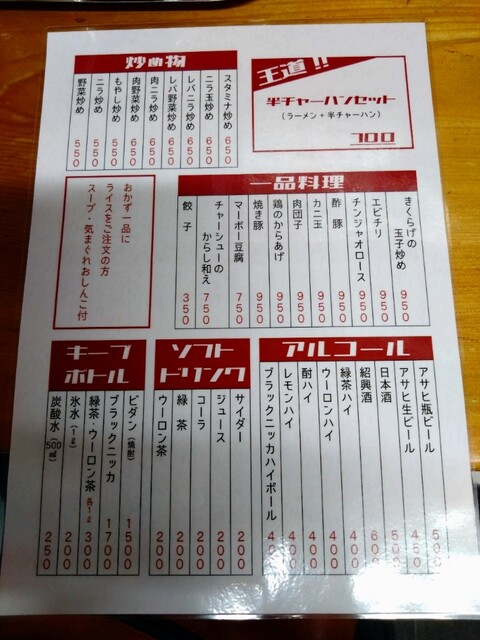 王道!!
半チャーハンセット
（ラーメン+半チャーハン）
700
炒め物
スタミナ炒め 650
ニラ玉炒め 650
レバニラ炒め 650
レバ野菜炒め 650
肉ニラ炒め 650
肉野菜炒め 650
もやし炒め 550
ニラ炒め 550
野菜炒め 550
一品料理
きくらげの
玉子炒め 950
エビチリ 950
チンジャオロース 950
酢豚 950
カニ玉 950
肉団子 950
鶏のからあげ 950
焼き豚 950
マーボー豆腐 750
チャーシューの
からし和え 750
餃子 350
おかず一品に
ライスをご注文の方
スープ・気まぐれおしんこ付
アルコール
アサヒ瓶ビール 500
アサヒ生ビール 450
日本酒 500
紹興酒 600
緑茶ハイ 400
ウーロンハイ 400
酎ハイ 400
レモンハイ 400
ブラックニッカハイボール 400
ソフト
ドリンク
サイダー 200
ジュース 200
コーラ 200
緑茶 200
ウーロン茶 200
キープ
ボトル
ビダン（焼酎） 1500
ブラックニッカ 1700
緑茶・ウーロン茶 各1ℓ 300
氷水（1ℓ） 200
炭酸水（500ml） 250